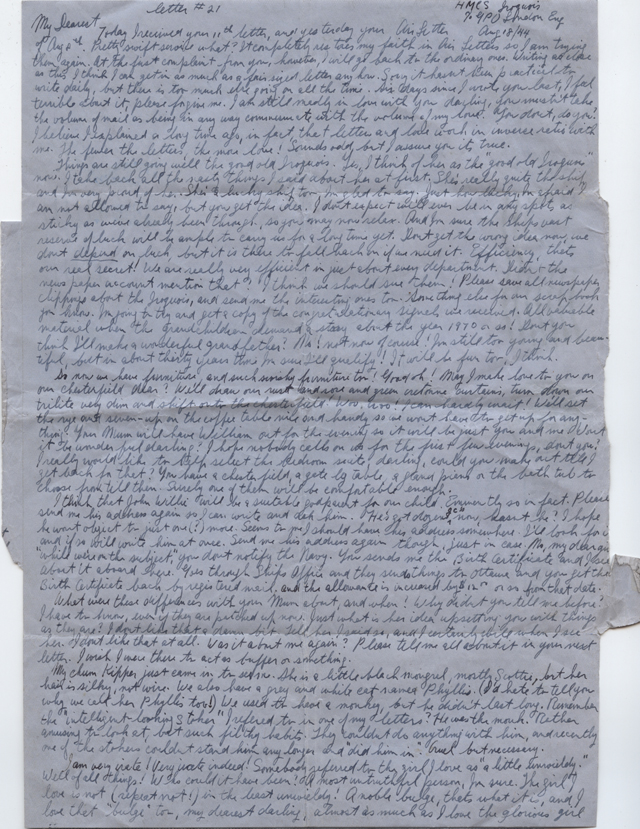 letter #21
HMCS Iroquois
℅ GPO London Eng
My Dearest Aug 18/44
Today I received your 11th letter, and yesterday your Air Letter
of Aug 6th. Pretty swift service what? It completely restores my faith in Air Letters so I am trying
them again. At the first complaint from you, however, I will go back to the ordinary one. Writing as close
as this I think I can get in as much as a fair sized letter any how. Sorry it hasn't been practical to
write daily, but there is too much else going on all the time. Six days since I wrote you last, I feel
terrible about it, please forgive me. I am still madly in love with you darling, you mustn't take
the volume of mail as being in any way commensurate with the volume of my love. You don't, do you?
I believe I explained a long time ago, in fact, that letters and love work in inverse ratio with
me. The fewer the letters, the more love! Sounds odd, but I assure you it's true.
Things are still going well the good old Iroquois. Yes, I think of her as the "good old Iroquois"
now. I take back all the nasty things I said about her at first. She's really quite the ship
and I'm very proud of her. She's a lucky ship too I'm glad to say. Just how lucky, I'm afraid I
am not allowed to say, but you get the idea. I don't expect we'll ever be in any spot as
sticky as we've already been through, so you may now relax. And I'm sure the ship's vast
reserve of luck will be ample to carry us for a long time yet. Don't get the wrong idea now, we
don't depend on luck, but it is there to fall back on if we need it. Efficiency, that's
our real secret! We are really very efficient in just about every department. Didn't the
newspaper account mention that? I think we should sue them! Please save all newspaper
clippings about the Iroquois, and send me the interesting ones too. Something else for our scrapbook
you know. I'm going to try and get a copy of the congratulationary signals we received. All valuable
material when the grandchildren demand a story about the year 1970 or so! Don't you
think I'll make a wonderful grandfather? No! not now of course! I'm still too young and beau-
tiful, but in about thirty years time I'm sure I'll qualify! It will be fun too, I think.
So now we have furniture, and such swishy furniture too! Good oh! May I make love to you on
our chesterfield dear? We'll draw our rust and and green cretonne curtains, turn down our
trilite very dim and shift onto the chesterfield! I can hardly wait! We'll set
the rye and seven-up on the coffee table nice and handy so we won't have to get up for any-
thing! Your Mum will have William out for the evening so it will be just you and me! Won't
it be wonderful daling! I hope nobody calls on us for the first few evenings, don't you?
I really would like to help select the bedroom suite, darling, could you make out till I
get back for that? You have a chesterfield, a gate leg table, a piano and the bath tub to
choose from till then. Surely one of them will be comfortable enough.
I think that John Willie Twill be a suitable godparent for our child. Eminently so in fact. Please
send me his address again so I can write and ask him. He's got dozens now, hasn't he? I hope
he won't object to just one (?) more. Seems to me I should have his address somewhere. I'll look for it
and if so will write him at once. Send me his address again though, just in case. No, my dear girl
"while we're on the subject" you don't notify the Navy. You send me the Birth Certificate and I see
about it aboard here. Goes through Ship's Office and they send things to Ottawa and you get the
Birth Certificate back by registered mail, and the allowance is increased by $ or so from that date.
What were these differences with your Mum about, and when? Why didn't you tell me before?
I have to know, even if they are patched up now. Just what is her idea upsetting you with things
as they are? I don't like that a damn bit. Tell her I said so, and I certainly will when I see
her. I don't like that at all. Was it about me again? Please tell me all about it in your next
letter. I wish I were there to act as buffer or something.
My chum Kipper just came in to see me. She is a little black mongrel, mostly Scottie, but her
hair is silky, not wire. We also have a grey and white cat named Phyllis. (I'd hate to tell you
why we call her Phyllis too!) We used to have a monkey, but he didn't last long. Remember
the "intelligent-looking stoker" I referred to in one of my letters? He was the monk. Rather
amusing to look at, but such filthy habits. They couldn't do anything with him, and recently
one of the stokers couldn't stand him any longer and "did him in". Cruel but necessary.
I am very irate! Very irate indeed! Somebody referred to the girl I love as "a little unwieldy."
Well of all things! Who could it have been? A most untruthful person, I'm sure. The girl I
love is not (repeat not!) in the least unwieldy! A noble bulge, that's what it is, and I
love that "bulge" too, my dearest darling, almost as much as I love the glorious girl